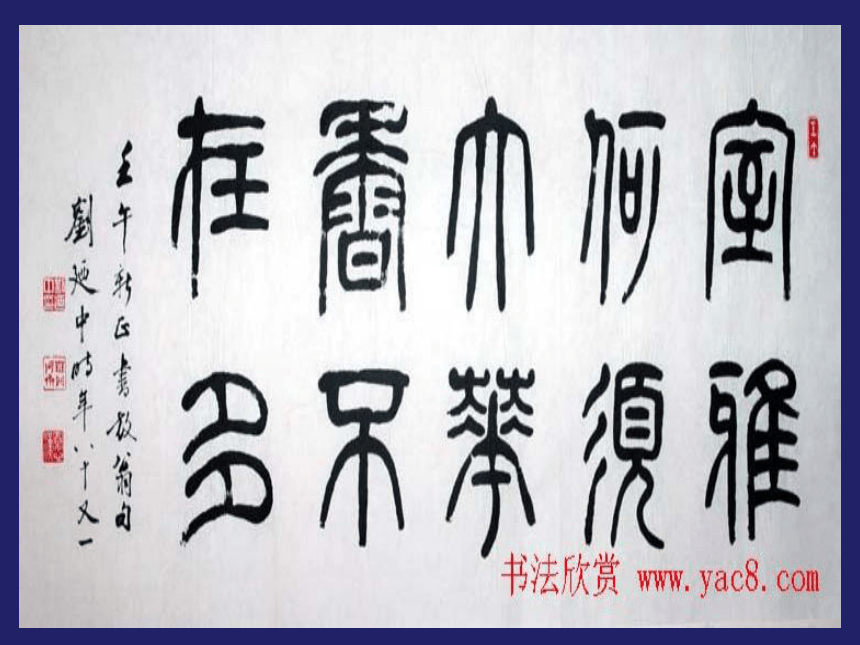 室雅
何須
大華
香不
在多
壬午新正書放翁句
劉廼中時年八十又一
壬午
书法欣赏 www.yac8.com